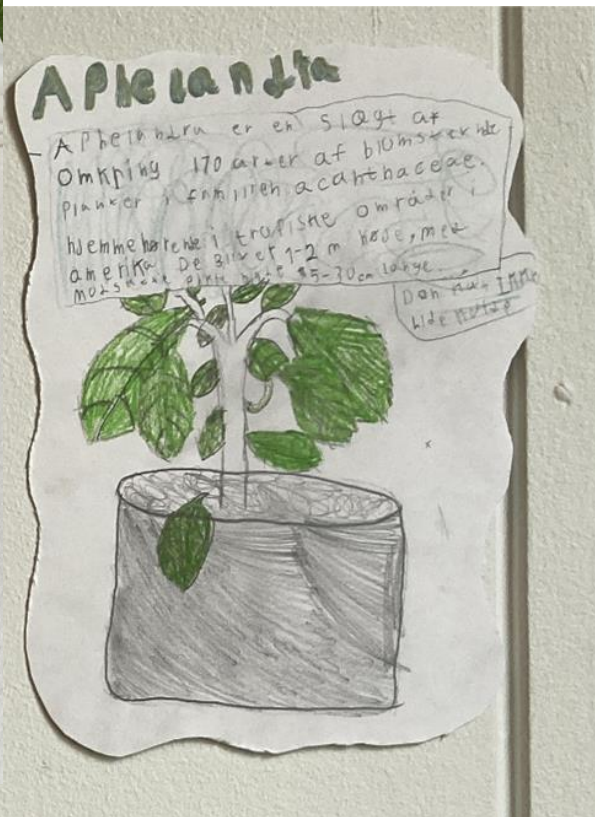 Aphelandra
Aphelandra er en slægt af
omkring 170 arter af blomstrende
planter i familien acanthaceae.
hjemmehørende i trofiske områder i
amerika. De bliver 1-2 m høje, med
modsatte 5-30 cm lange.
Den må IKKE